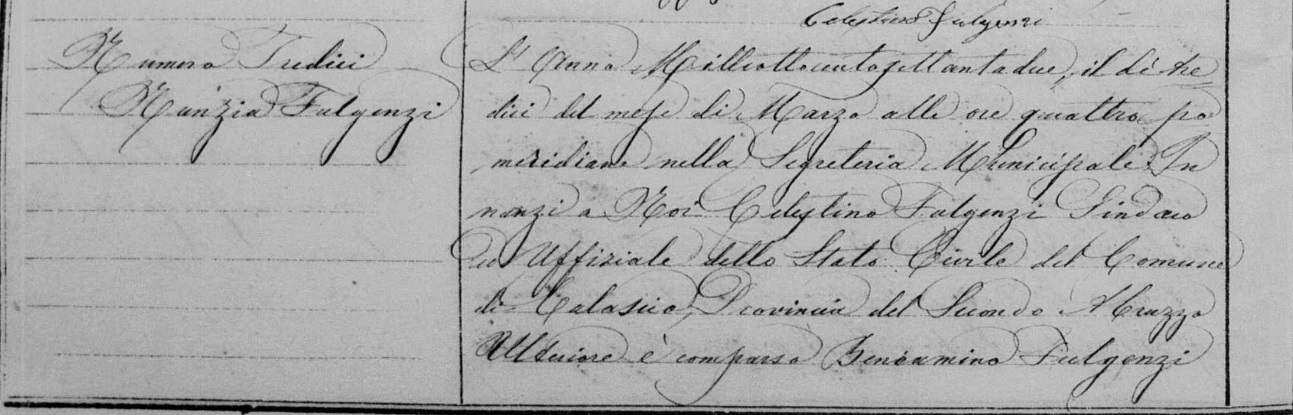 Celestino Fulgenzi
Numero Tredici
Nunzia Fulgenzi
L'Anno Milleottocentosettantadue, il dì tre=
dici del mese di Marzo alle ore quattro po
meridiane nella Segreteria Municipale. In
nanzi a Noi Celestino Fulgenzi Sindaco
ed Uffiziale dello Stato Civile del Comune
di Calascio, Provincia del Secondo Abruzzo
Ulteriore è comparso Beniamino Fulgenzi